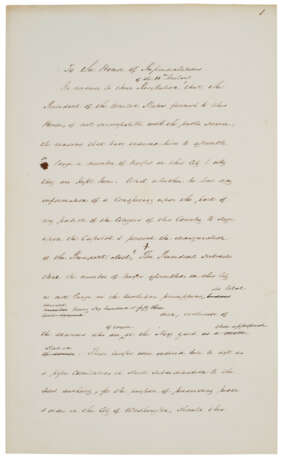 1
To the House of Representatives
of the 11th instant
In answer to their Resolution that the
President of the United States furnish to this
House, if not incompatible with the public service,
the reasons that have induced him to assemble
so large a number of troops in this City, & why
they are kept here. And whether he has any
information of a conspiracy upon the part of
any portion of the Citizens of this Country to seize
upon the Capitol & prevent the inauguration
of the President elect, The President submits
that the number of troops assembled in this City
is not large as the Resolution presupposes,
its total
being six hundred & fifty three
men, exclusive of
of course
the marines who are at the Navy yard as
their appropriate
station
These troops were ordered here to act as
a posse Comitatus in strict subordination to the
Civil authority, for the purpose of preserving peace
& order in the City of Washington, should this